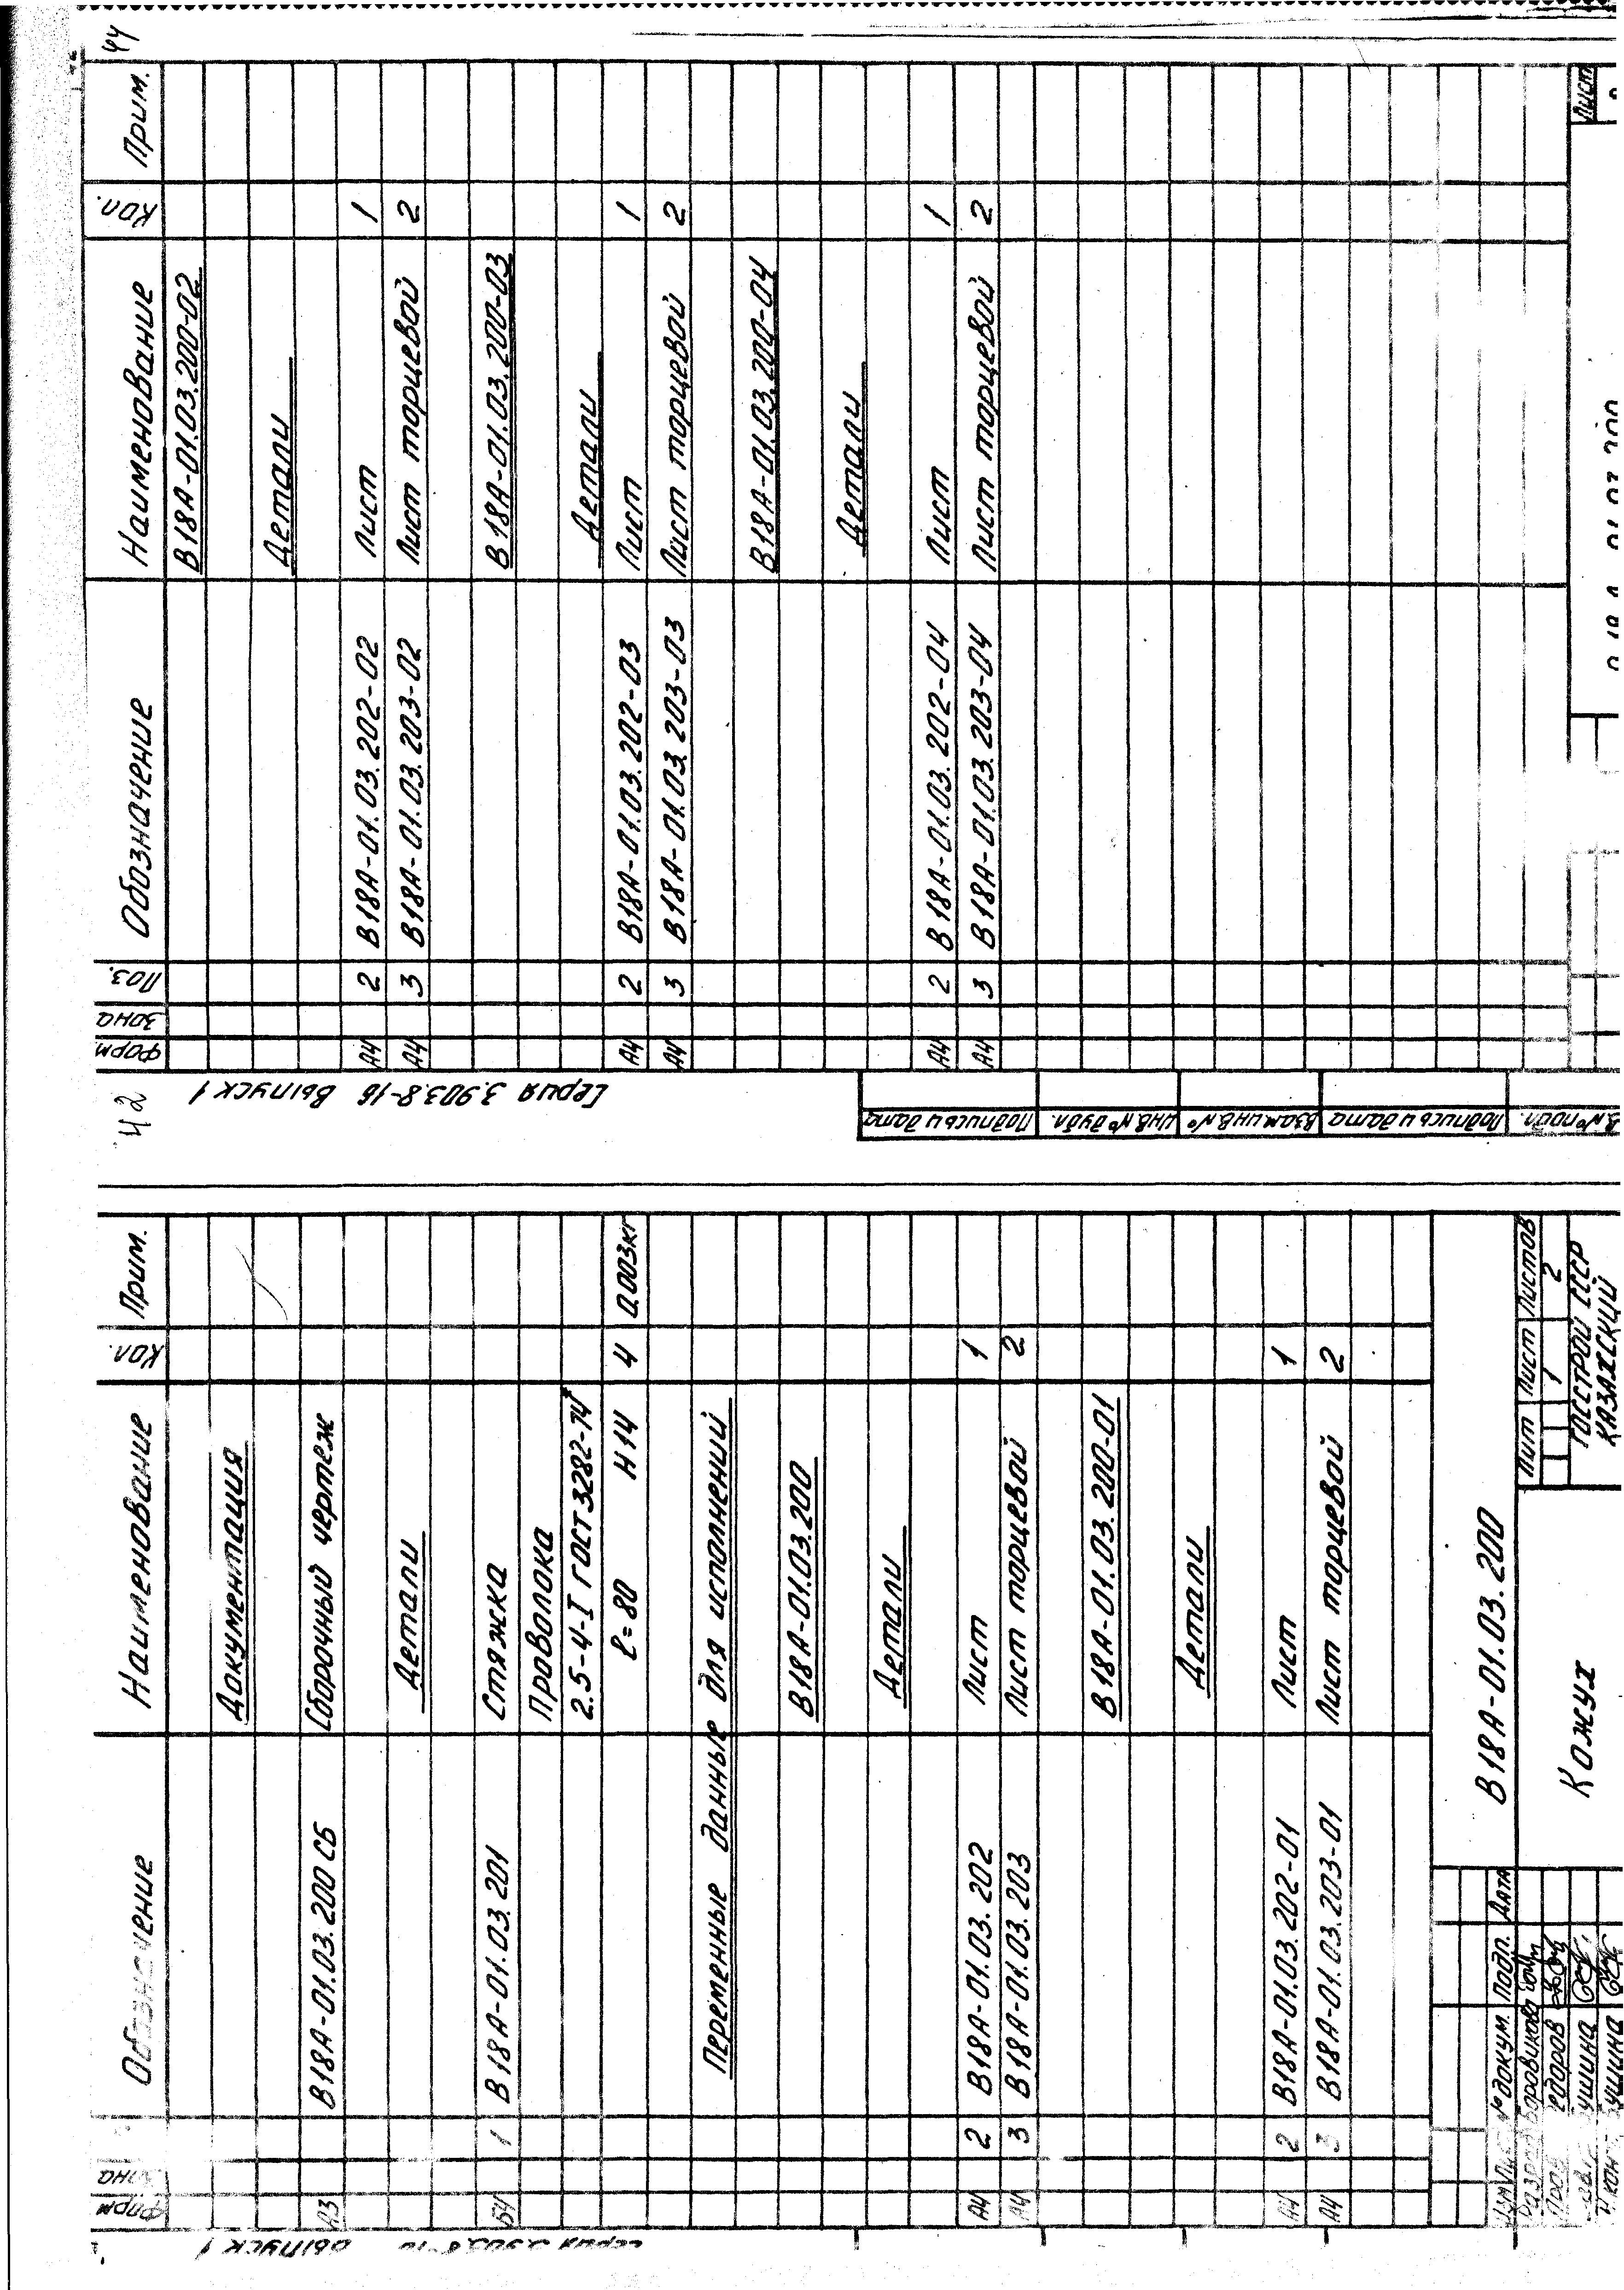 Форм. Зона Обозначение Наименование Кол. Прим.
Документация
А3 В18А-01.03.200 СБ Сборочный чертеж
Детали
БЧ 1 В18А-01.03.201 Стяжка
Проволока
2.5-4-I ГОСТ 3282-74*
ℓ=80 H14 4 0.003кг
Переменные данные для исполнений
В18А-01.03.200
Детали
А4 2 В18А-01.03.202 Лист 1
А4 3 В18А-01.03.203 Лист торцевой 2
В18А-01.03.200-01
Детали
А4 2 В18А-01.03.202-01 Лист 1
А4 3 В18А-01.03.203-01 Лист торцевой 2
В18А-01.03.200
№ докум. Подп. Дата
Кожух
Лит Лист Листов
1 2
ГОССТРОЙ СССР
КАЗАХСКИЙ
Выпуск 1
42
44
Серия 3.903.8-16 Выпуск 1
Форм Зона Поз. Обозначение Наименование Кол. Прим.
В18А-01.03.200-02
Детали
А4 2 В18А-01.03.202-02 Лист 1
А4 3 В18А-01.03.203-02 Лист торцевой 2
В18А-01.03.200-03
Детали
А4 2 В18А-01.03.202-03 Лист 1
А4 3 В18А-01.03.203-03 Лист торцевой 2
В18А-01.03.200-04
Детали
А4 2 В18А-01.03.202-04 Лист 1
А4 3 В18А-01.03.203-04 Лист торцевой 2
Подпись и дата
Инв.№ дубл.
Взам.инв.№
Подпись и дата
№ подл.
Лист